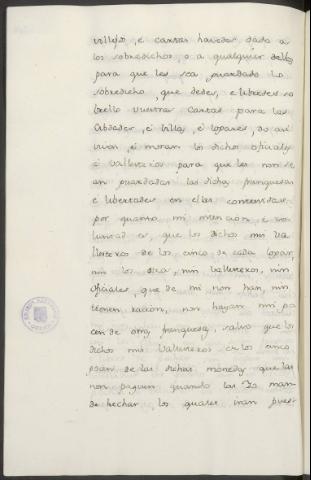 villejo, e cartas havedes dado a
los sobredichos, o a qualquier dellos
para que les sea guardado lo
sobredicho, que dedes, e libredes so
brello vuestras Cartas para las
Cibdades, é Villas, é logares, do assi
viven, é moran los dichos oficiales
é Vallesteros para que les non se
an guardadas las dichas franquezas
e libertades en ellas contenidas:
por quanto mi intención e vo
luntad es, que los dichos mis Va
llesteros de los cinco de cada logar,
nin los otros, nin Vallesteros, nin
oficiales, que de mi non han, nin
tienen ración, non hayan nin go
cen de otra franqueza, salvo que los
dichos mis Vallesteros de los cinco
sean de las dichas monedas que las
non paguen quando las Yo man
de hechar, los quales sean puest